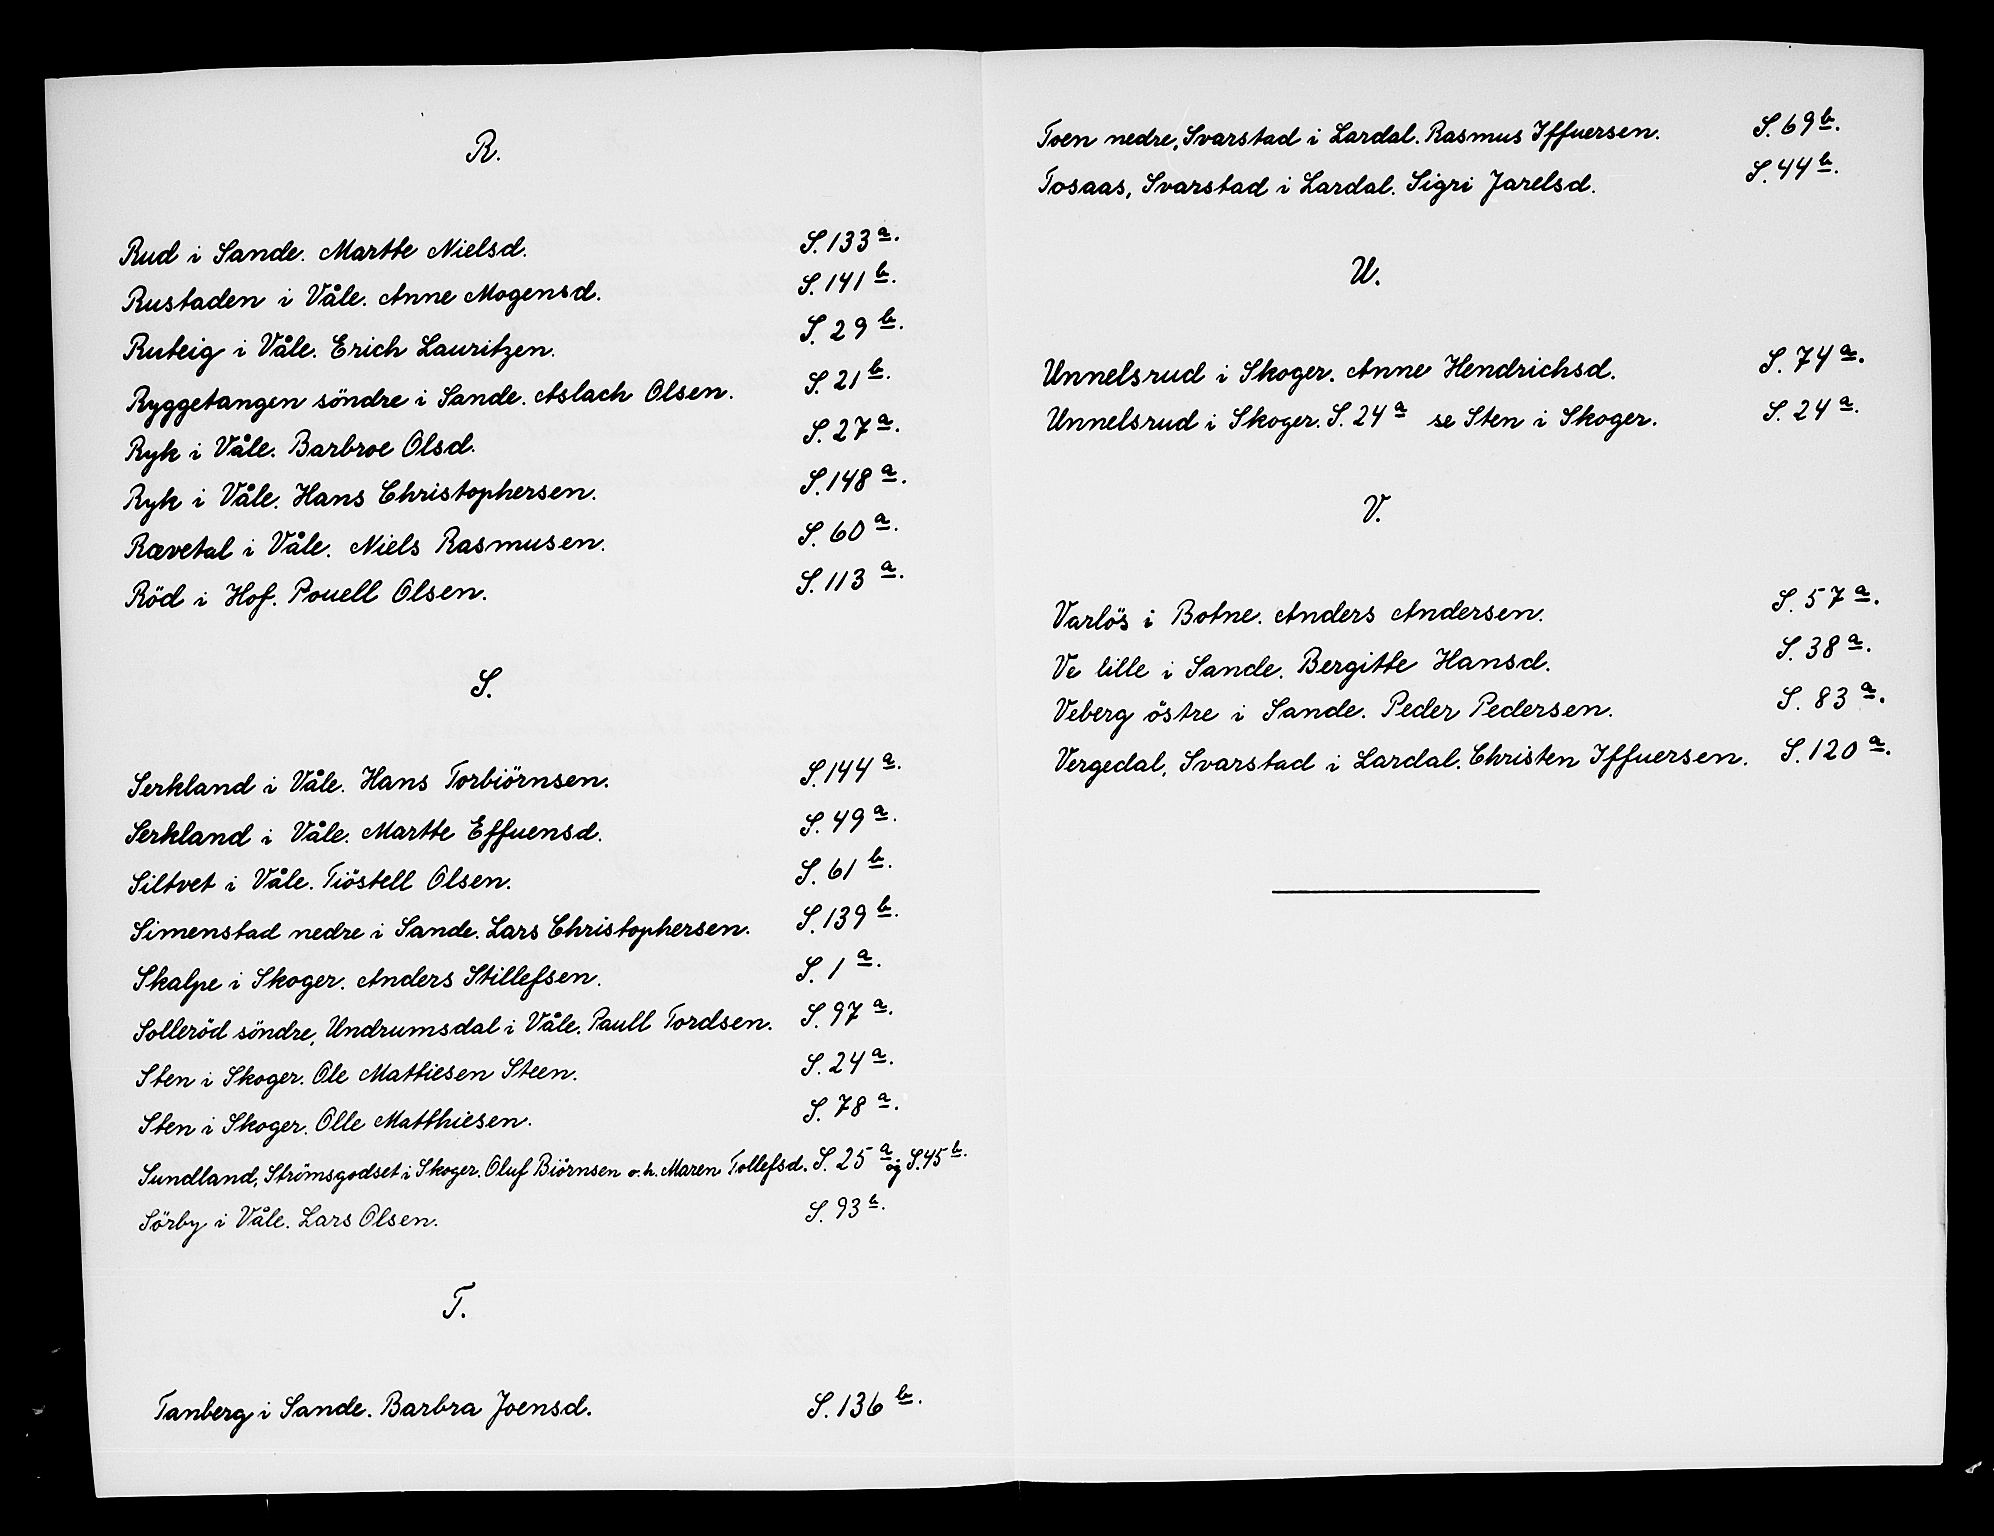 R.
Rud i Sande. Martte Nielsd. S. 133 a.
Rustaden i Våle. Anne Mogensd. S. 141 b.
Ruteig i Våle. Erich Lauritzen. S. 29 b.
Ryggetangen söndre i Sande. Aslach Olsen. S. 21 b.
Ryk i Våle. Barbroe Olsd. S. 27 a.
Ryk i Våle. Hans Christophersen. S. 148 a.
Rævetal i Våle. Niels Rasmusen. S. 60 a.
Röd i Hof. Pouell Olsen. S. 113 a.
S.
Serkland i Våle. Hans Torbiörnsen. S. 144 a.
Serkland i Våle. Martte Effuensd. S. 49 a.
Siltvet i Våle. Tiöstell Olsen. S. 61 b.
Simenstad nedre i Sande. Lars Christophersen. S. 139 b.
Skalpe i Skoger. Anders Stillefsen. S. 1 a.
Solleröd söndre, Undrumsdal i Våle. Paull Tordsen. S. 97 a.
Sten i Skoger. Ole Mattiesen Steen. S. 24 a.
Sten i Skoger. Olle Matthiesen. S. 78 a.
Sundland, Strömsgodset i Skoger. Oluf Biörnsen o. h. Maren Tollefsd. S. 25 a og S. 45 b.
Sörby i Våle. Lars Olsen. S. 93 b.
T.
Tanberg i Sande. Barbra Joensd. S. 136 b.
Toen nedre, Svarstad i Lardal. Rasmus Iffuersen. S. 69 b.
Tosaas, Svarstad i Lardal. Sigri Jarelsd. S. 44 b.
U.
Unnelsrud i Skoger. Anne Hendrichsd. S. 74 a.
Unnelsrud i Skoger. S. 24 a se Sten i Skoger. S. 24 a.
V.
Varlös i Botne. Anders Andersen. S. 57 a.
Ve lille i Sande. Bergitte Hansd. S. 38 a.
Veberg östre i Sande. Peder Pedersen. S. 83 a.
Vergedal, Svarstad i Lardal. Christen Iffuersen. S. 120 a.